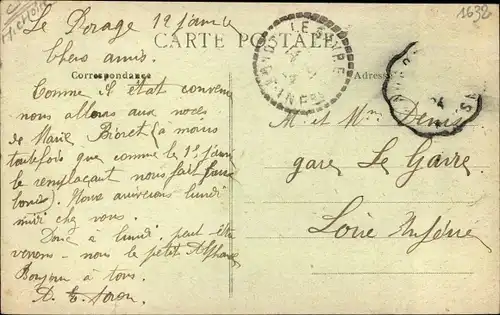 1632
Le Dorage 12 janvier
CARTE POSTALE
Chers amis.
Correspondance
Adresse
Comme il était convenu
nous allons aux noces
de Marie Bioret (a moins
toutefois que comme le 1er janv
le remplaçant nous fait faux
bond). Nous arriverons lundi
midi chez vous.
Donc à lundi peut être
venons-nous le petit Alphonse
Bonjour à tous.
M. et Mme Denis
gare Le Gavre
Loire Inférre